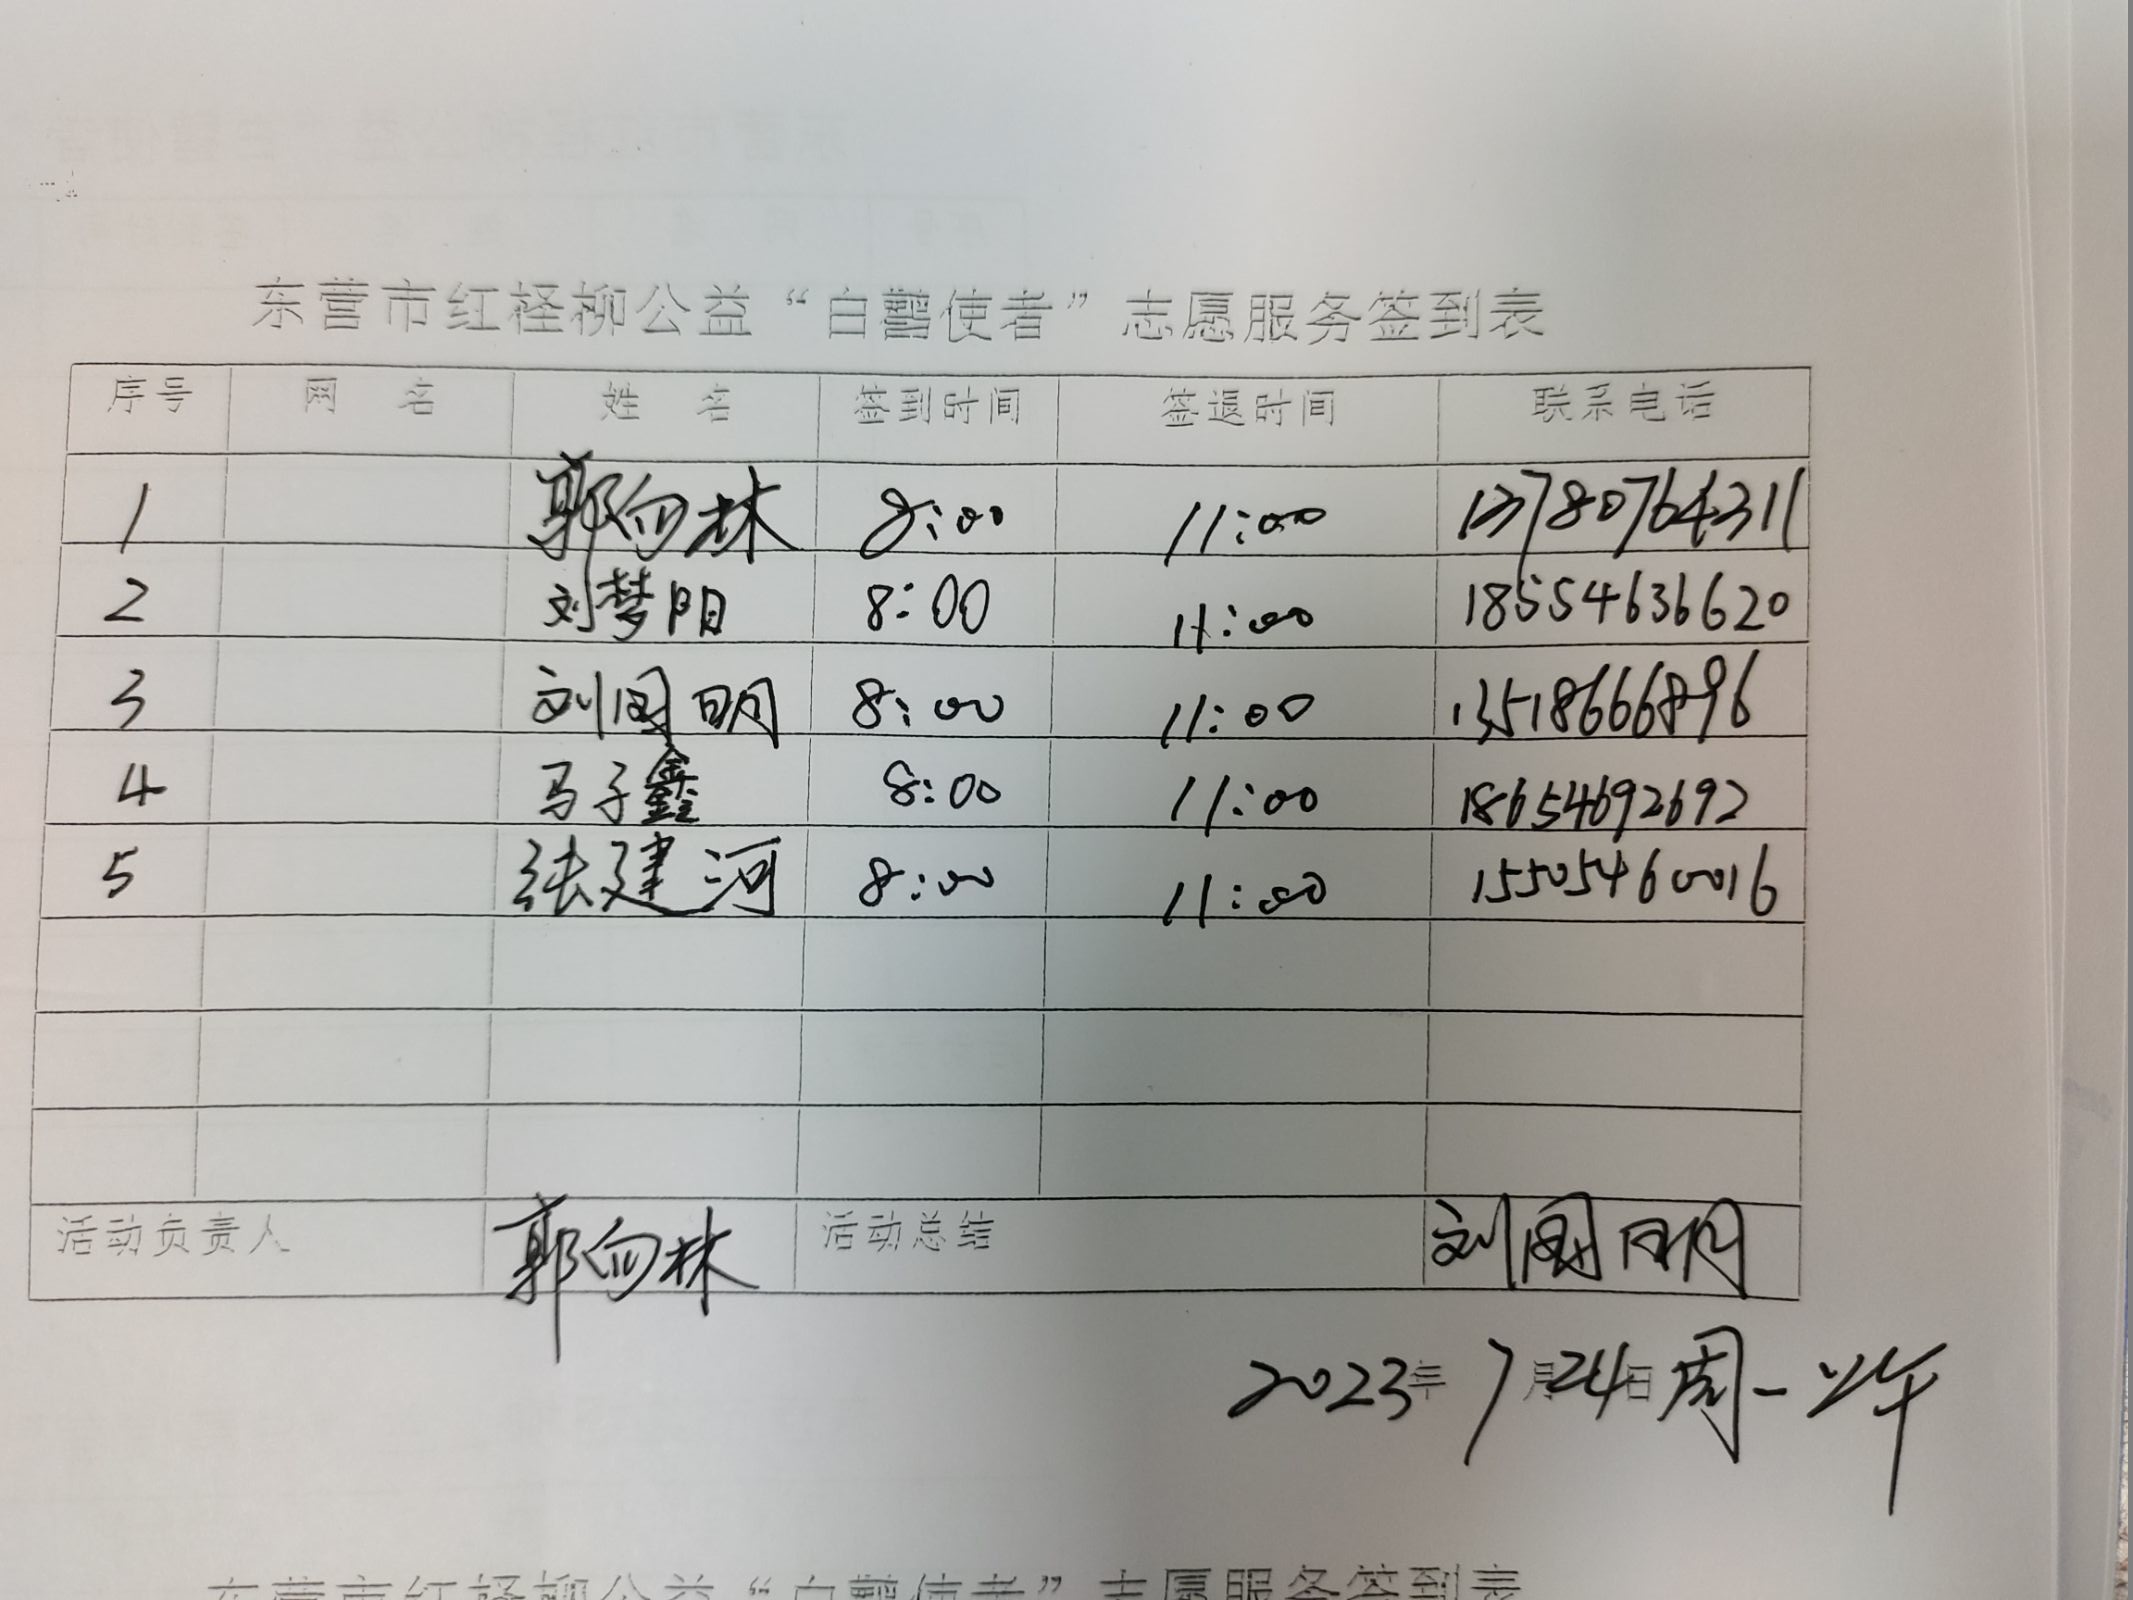 东营市红柽柳公益“白鹳使者”志愿服务签到表
序号 网 名 姓 名 签到时间 签退时间 联系电话
1 郭向林 8:00 11:00 13780764311
2 刘梦阳 8:00 11:00 18554636620
3 刘国明 8:00 11:00 13518666896
4 马子鑫 8:00 11:00 18654692692
5 张建河 8:00 11:00 15505460016
活动负责人 郭向林 活动总结 刘国明
2023年7月24日周一上午
东营市红柽柳公益“白鹳使者”志愿服务签到表